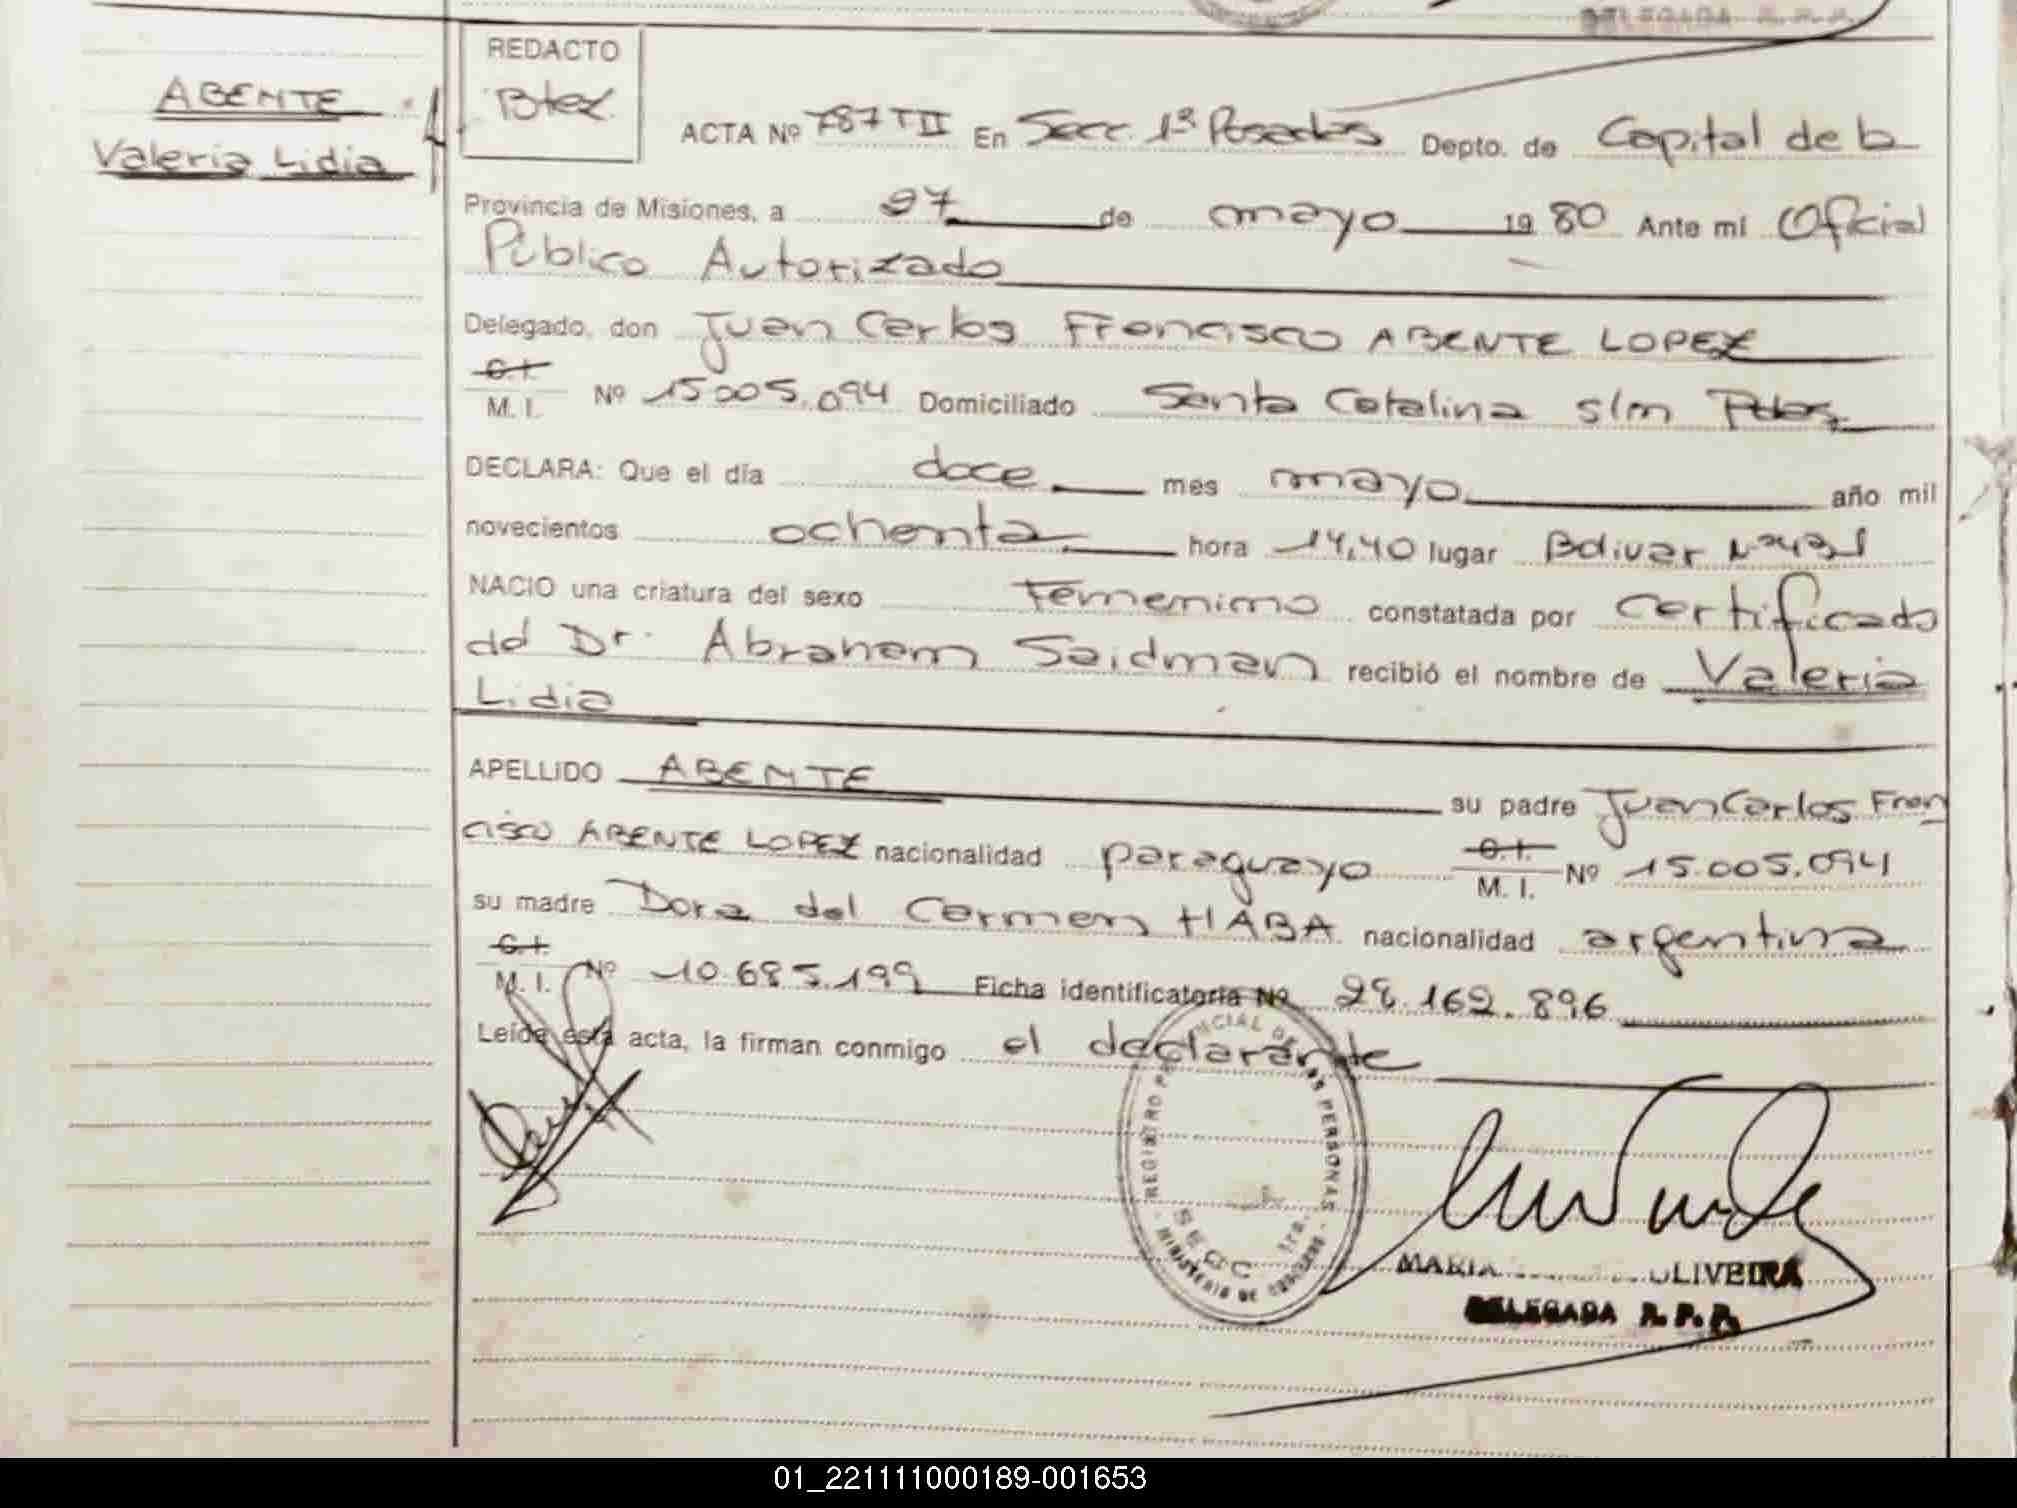 DELEGADA R.P.P.
ABENTE
Valeria Lidia
REDACTO
Btez.
ACTA Nº 787 T II En Secc. 1ª Posadas Depto. de Capital de la
Provincia de Misiones, a 27 de mayo 1980 Ante mi Oficial
Público Autorizado
Delegado, don Juan Carlos Francisco ABENTE LOPEZ
C.I.
M. I. Nº 15.005.094 Domiciliado Santa Catalina s/n Pdas.
DECLARA: Que el día doce mes mayo año mil
novecientos ochenta hora 14,40 lugar Bolivar
NACIO una criatura del sexo Femenino constatada por certificado
del Dr. Abraham Saidman recibió el nombre de Valeria
Lidia
APELLIDO ABENTE su padre Juan Carlos Fran
cisco ABENTE LOPEZ nacionalidad paraguayo C.I. M. I. Nº 15.005.094
su madre Dora del Carmen HABA nacionalidad argentina
C.I.
M. I. Nº 10.685.199 Ficha identificatoria Nº 28.162.896
Leída esta acta, la firman conmigo el declarante
REGISTRO PROVINCIAL DE LAS PERSONAS
SECC 1ra.
MINISTERIO DE GOBIERNO
MARIA OLIVEIRA
DELEGADA R.P.P.
01_221111000189-001653